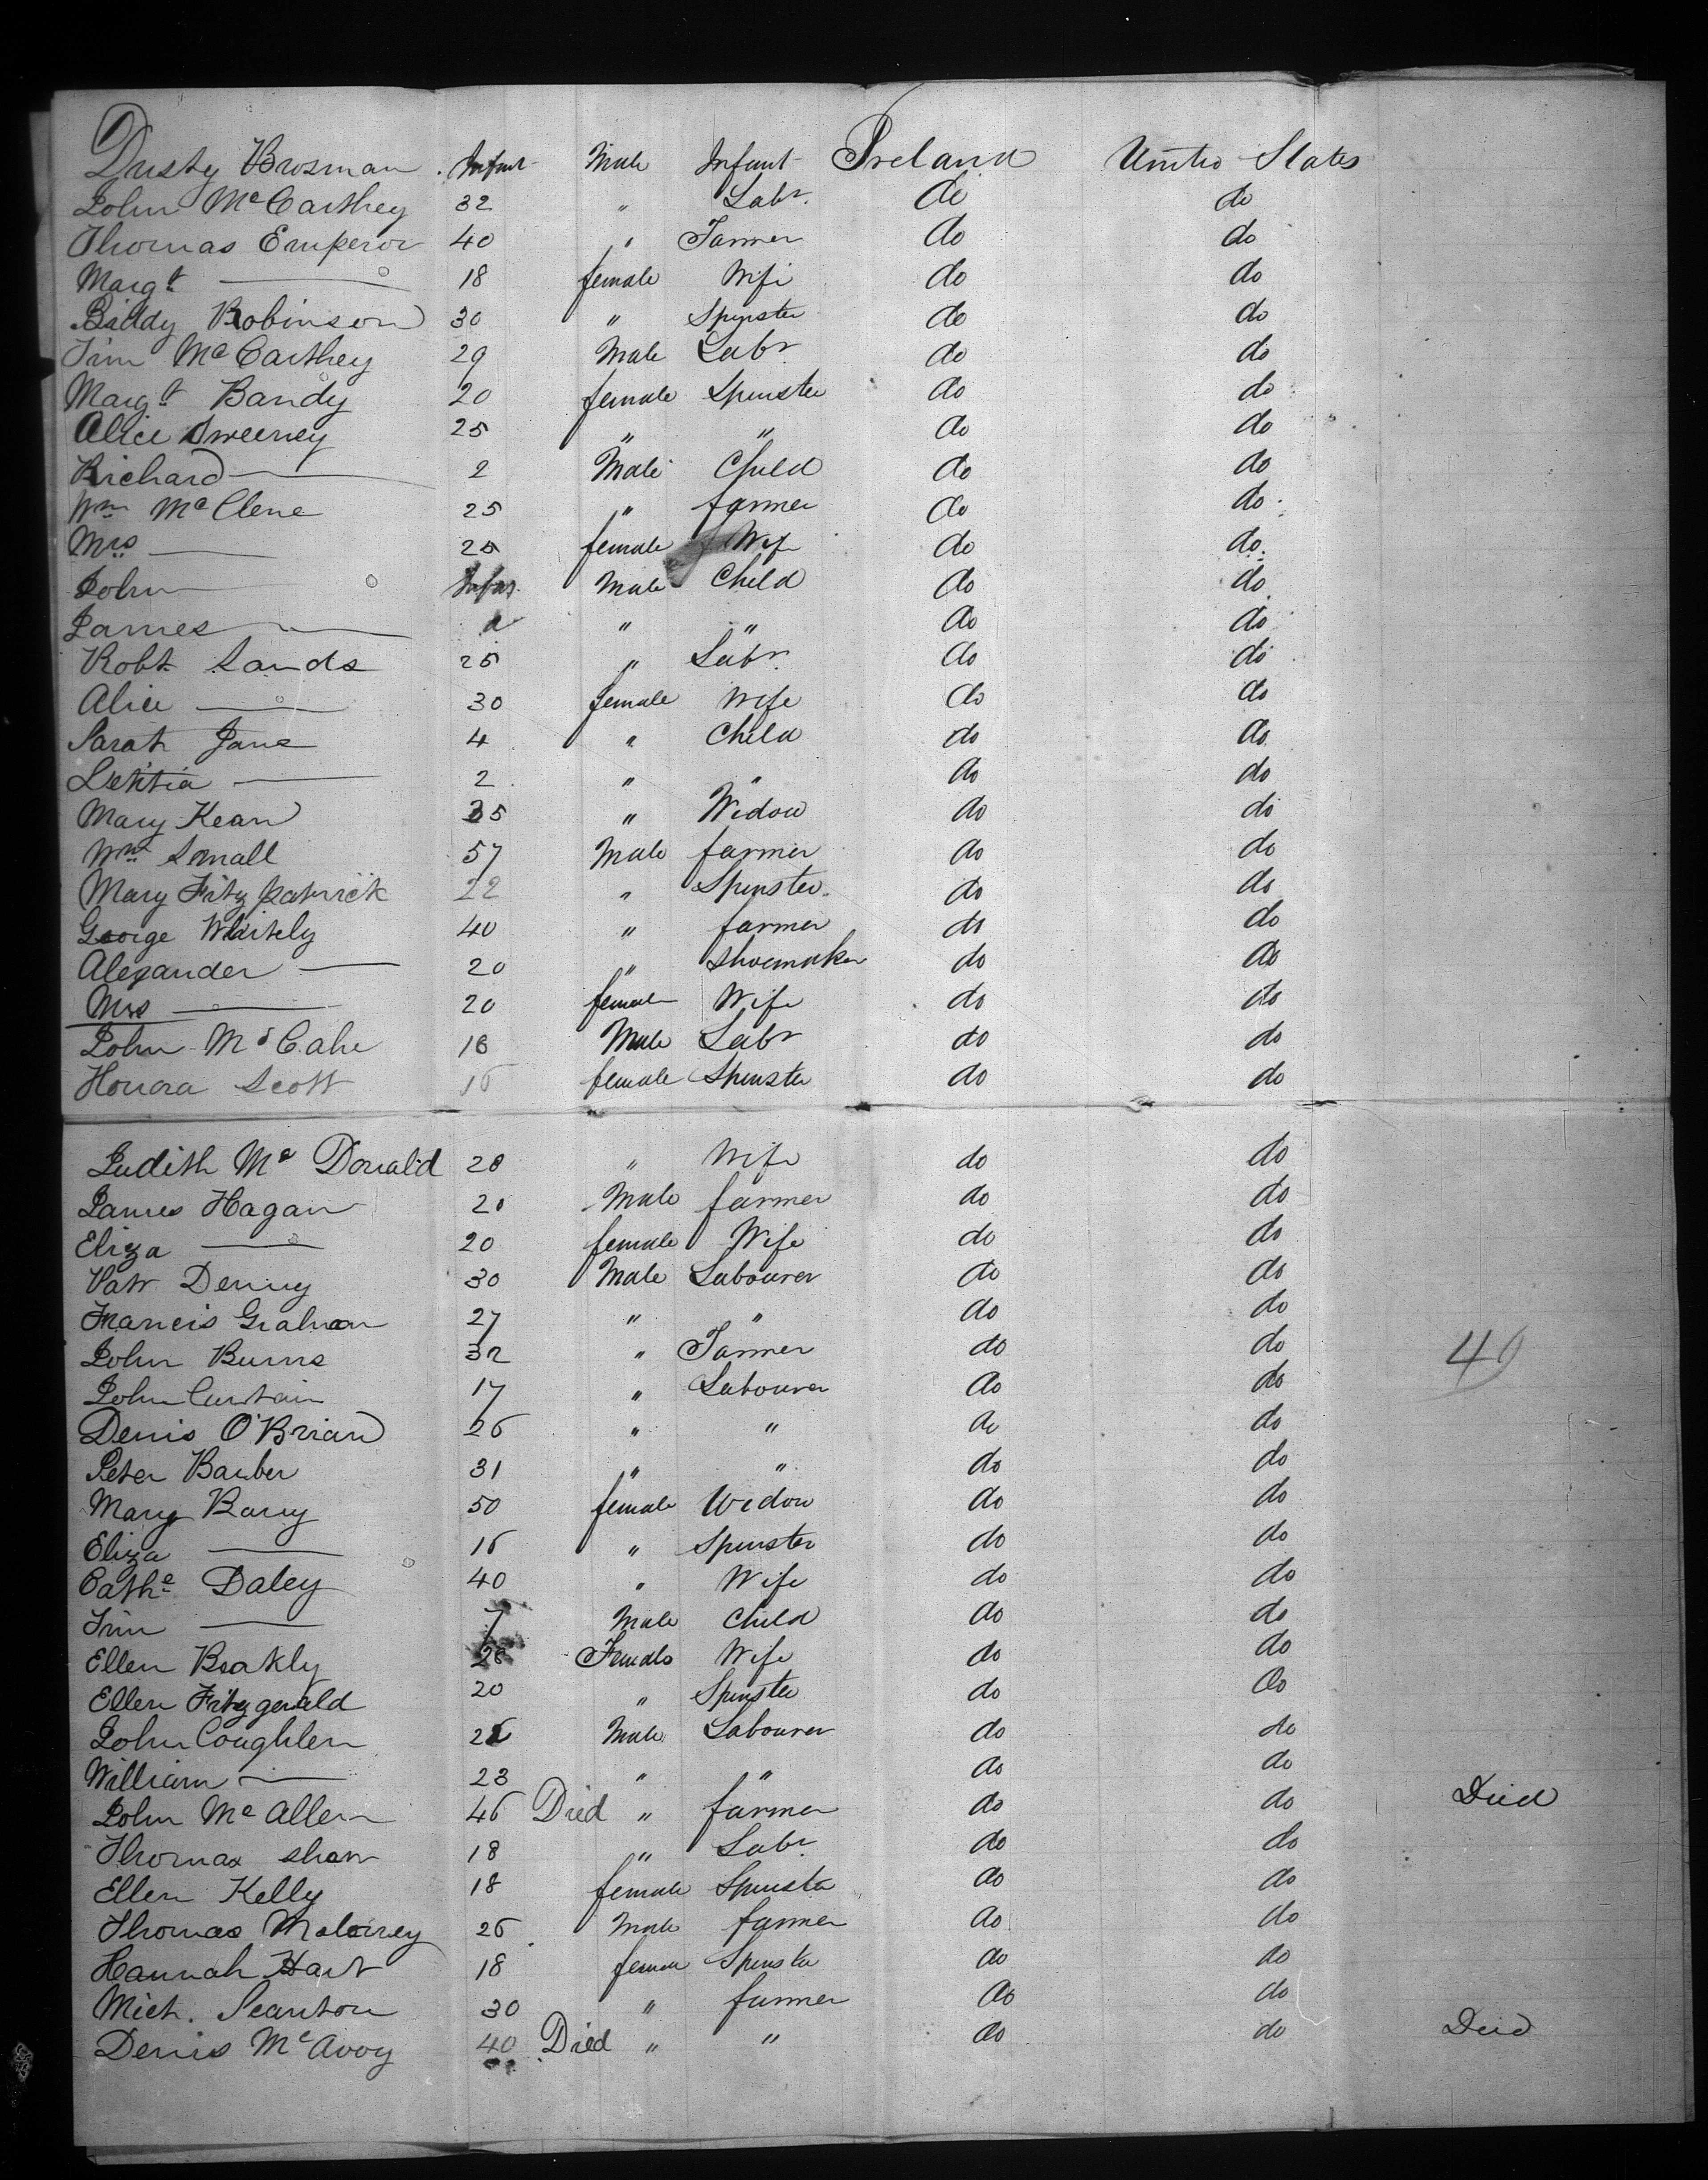 Dusty Brosman Infant Male Infant Ireland United States
John McCarthey 32 " Labr. do do
Thomas Emperor 40 " Farmer do do
Margt — 18 female Wife do do
Biddy Robinson 30 " Spinster do do
Tim McCarthey 29 Male Labr do do
Margt Bandy 20 female Spinster do do
Alice Sweeney 25 " " do do
Richard — 2 Male Child do do
Wm McClene 25 " farmer do do
Mrs — 25 female Wife do do
John — Infan. Male Child do do
James — " " do do
Robt Sands 25 " Labr. do do
Alice — 30 female Wife do do
Sarah Jane 4 " Child do do
Letitia — 2 " " do do
Mary Kean 35 " Widow do do
Wm Small 57 Male farmer do do
Mary Fitzpatrick 22 " Spinster do do
George Whitely 40 " farmer do do
Alexander — 20 " Shoemaker do do
Mrs — 20 female Wife do do
John McCabe 18 Male Labr do do
Honora Scott 16 female Spinster do do
Judith Mc Donald 28 " Wife do do
James Hagan 20 Male farmer do do
Eliza — 20 female Wife do do
Patt Denny 30 Male Labourer do do
Francis Graham 27 " " do do
John Burns 32 " Farmer do do 49
John Curtain 17 " Labourer do do
Denis O'Brian 26 " " do do
Peter Barber 31 " " do do
Mary Barry 50 female Widow do do
Eliza — 16 " Spinster do do
Cathe Daley 40 " Wife do do
Tim — 7 Male Child do do
Ellen Brakly 28 Female Wife do do
Ellen Fitzgerald 20 " Spinster do do
John Coughlen Male Labourer do do
William — 23 " " do do
John Mc Allen 46 Died " farmer do do Died
Thomas Shaw 18 " Labr. do do
Ellen Kelly 18 female Spinster do do
Thomas Maloney 26 Male farmer do do
Hannah Hart 18 female Spinster do do
Mich. Scanton 30 " farmer do do
Denis McAvoy 40 Died " " do do Died